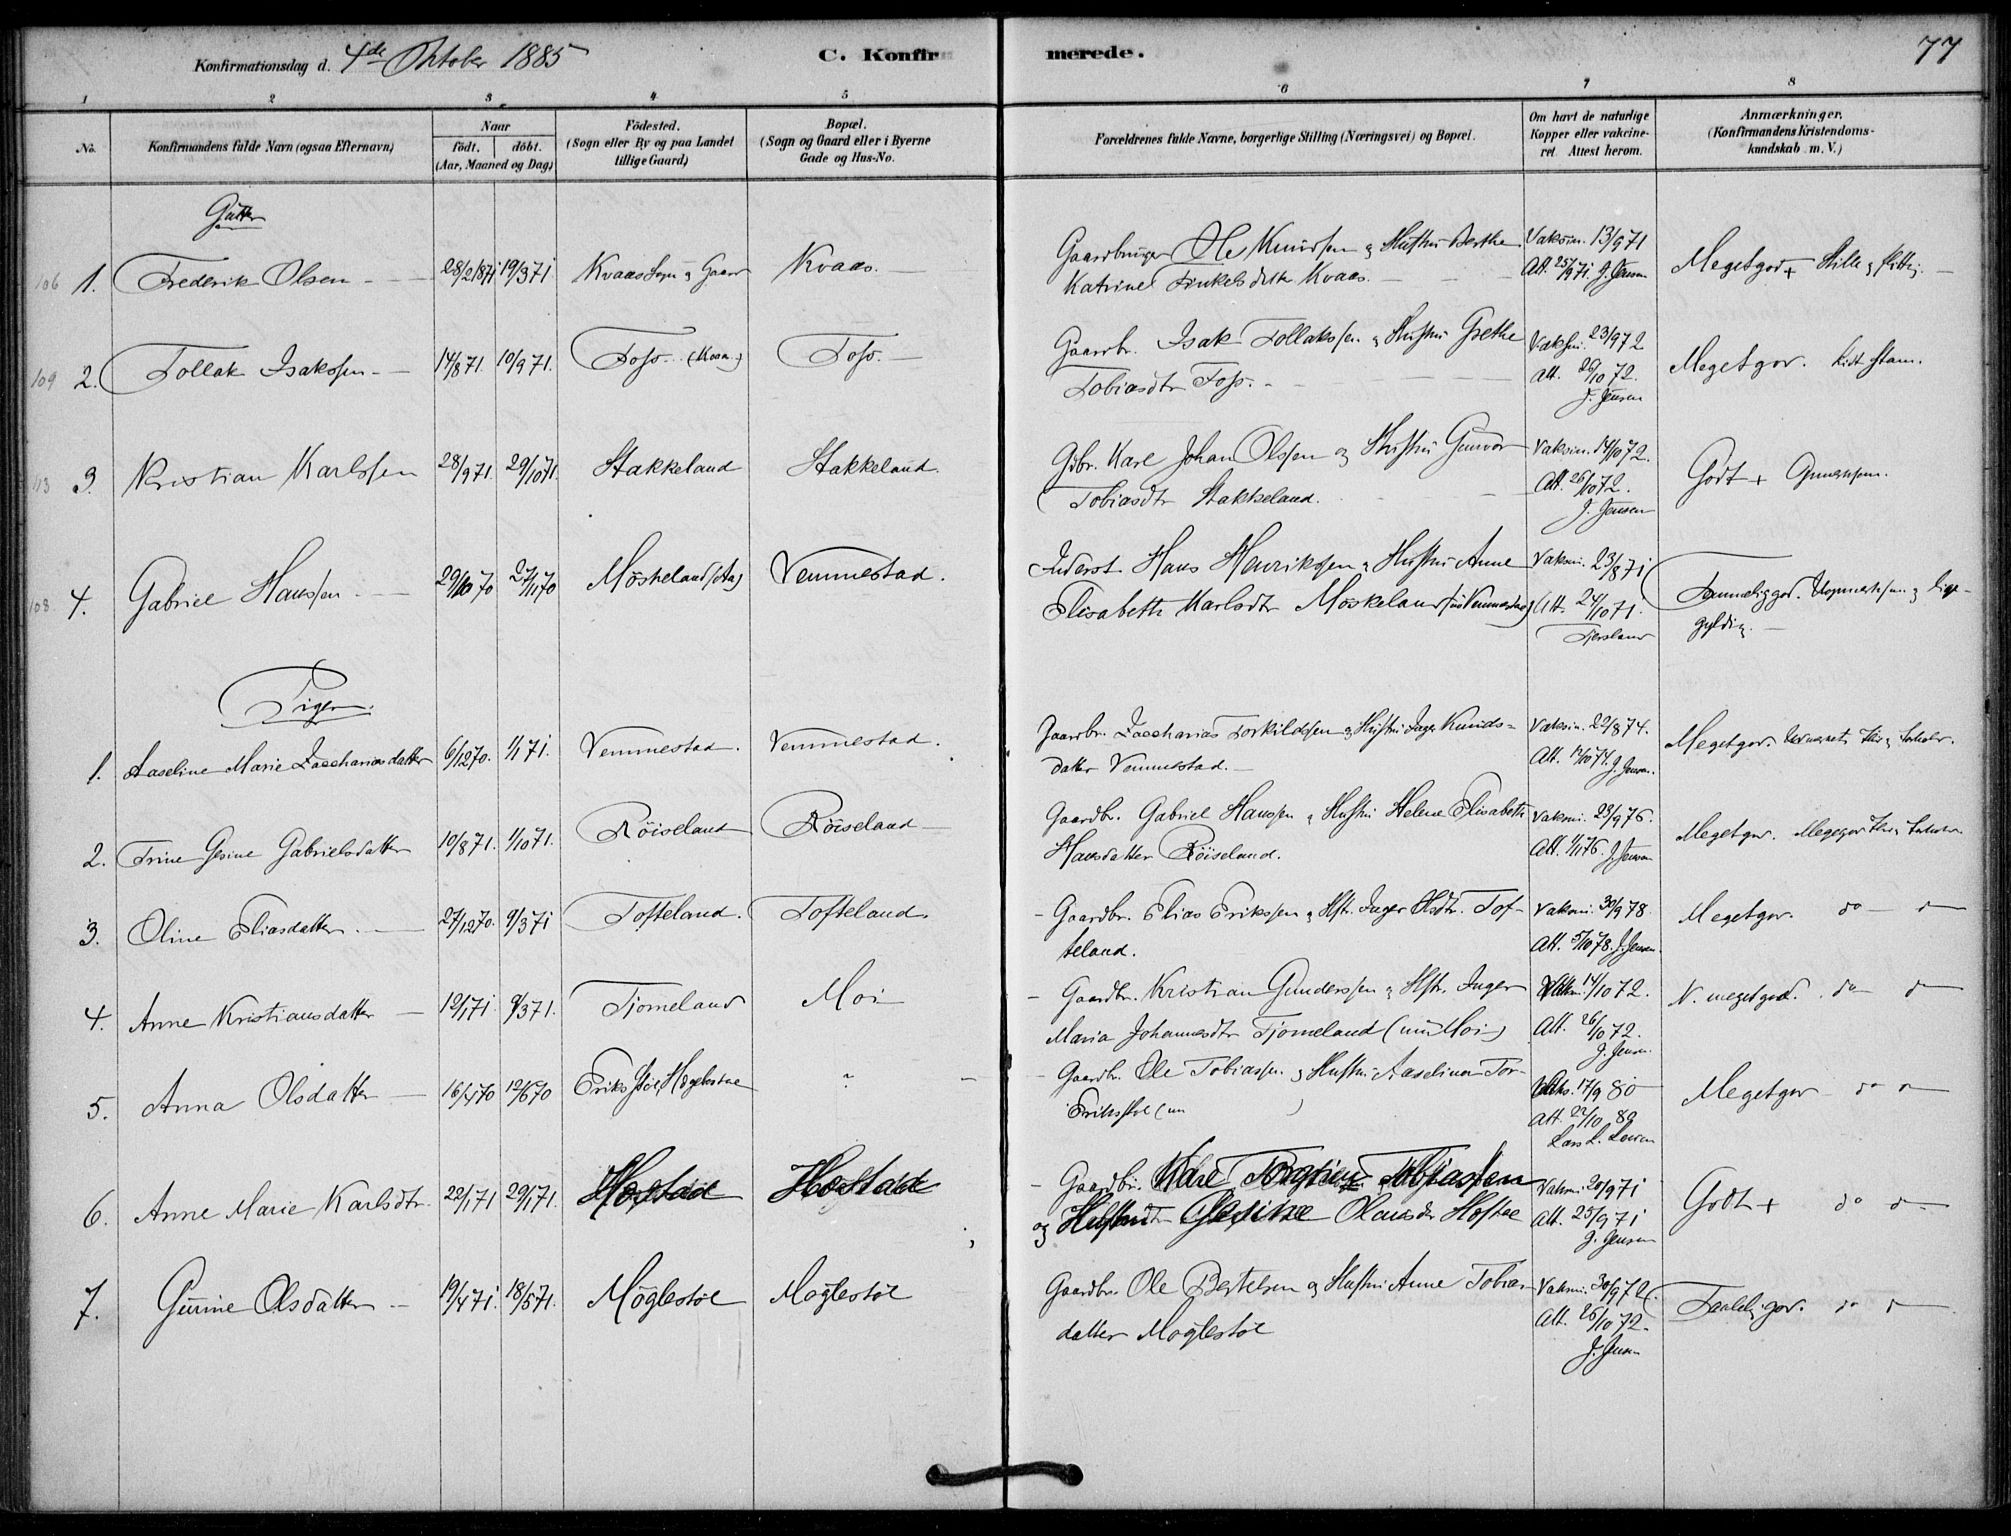 Konfirmationsdag d. 4de Oktober 1885
C. Konfirmerede.
77
1 2 3 4 5 6 7 8
No.
Konfirmandens fulde Navn (ogsaa Efternavn)
Naar
født. døbt.
(Aar, Maaned og Dag)
Fødested.
(Sogn eller By og paa Landet
tillige Gaard)
Bopæl.
(Sogn og Gaard eller i Byerne
Gade og Hus-No.
Forældrenes fulde Navne, borgerlige Stilling (Næringsvei) og Bopæl.
Om havt de naturlige
Kopper eller vakcine-
ret. Attest herom.
Anmærkninger.
(Konfirmandens Kristendoms-
kundskab m. V.)
Gutter
106 1. Frederik Olsen 28/2 1871 19/3 71 Kvaas Sogn og Gaard Kvaas.
Gaardbruger Ole Knudsen og Hustru Berthe
Katrine Tinkelsdatter Kvaas.
Vaksin. 13/9 71
Att. 25/9 71. J. Jensen
Megetgodt Stille og flittig.
109 2. Tollak Isaksen 14/8 71. 10/9 71. Foss. (Kvaas) Foss.
Gaardbr. Isak Tollaksen og Hustru Grethe
Tobiasdtr Foss.
Vaksin. 23/9 72
Att. 26/10 72.
J. Jensen
Megetgod. Lidt stam.
113 3. Kristian Karlssen 28/9 71. 29/10 71. Stakkeland Stakkeland.
Gdbr. Karl Johan Olssen og Hustru Gunvor
Tobiasdtr Stakkeland.
Vaksin. 14/10 72.
Att. 26/10 72.
J. Jensen
Godt
108 4. Gabriel Hanssen 29/10 70 27/11 70 Møskeland (Aa) Vemmestad.
Inderst. Hans Henriksen og Hustru Anne
Elisabeth Karlsdtr Møskeland (nu Vemmestad)
Vaksin. 23/8 71
Att. 24/10 71.
Fjersland
Temmelig god. Uopmerksom og lige-
gyldig.
Piger.
1. Aaseline Marie Zacchariasdatter 6/12 70. 1/1 71. Vemmestad. Vemmestad.
Gaardbr. Zaccharias Torkildsen og Hustru Inger Knuds-
datter Vemmestad.
Vaksin. 22/8 74.
Att. 17/10 74. J. Jensen.
Megetgod.
2. Trine Gesine Gabrielsdatter 10/8 71. 1/10 71. Röiseland Röiseland
Gaardbr. Gabriel Hanssen og Hustru Helene Elisabeth
Hansdatter Röiseland.
Vaksin. 23/9 76.
Att. 1/11 76. J. Jensen
Megetgod.
3. Oline Eliasdatter. 27/12 70. 9/3 71 Tofteland. Tofteland.
Gaardbr. Elias Erikssen og Hstr. Inger Olsdtr. Tof-
teland.
Vaksin. 30/9 78.
Att. 5/10 78. J. Jensen.
Megetgod. do
4. Anne Kristiansdatter 12/1 71. 9/3 71. Tjomeland Moi
Gaardbr. Kristian Gunderssen og Hstr. Inger
Maria Johannesdtr Tjomeland (nu Moi)
14/10 72.
Att. 26/10 72.
J. Jensen
N. megetgod. do
5. Anna Olsdatter 16/4 70 12/6 70
Gaardbr. Ole Tobiassen og Hustru Aaselina Tor-
Erikstøl (nu )
Vaks. 17/9 80
Att. 22/10 80
Lars L.
Megetgod do
6. Anne Marie Karlsdtr. 22/1 71 29/1 71.
Gaardbr.
og Hustru
Vaksin. 20/9 71
Att. 25/9 71
J. Jensen
Godt do
7. Gurine Olsdatter 19/4 71. 18/5 71. Møglestøl Møglestøl
Gaardbr. Ole Bertelsen og Hustru Anne Tobias-
datter Møglestøl
Vaksin. 30/9 72.
Att. 26/10 72.
J. Jensen
do